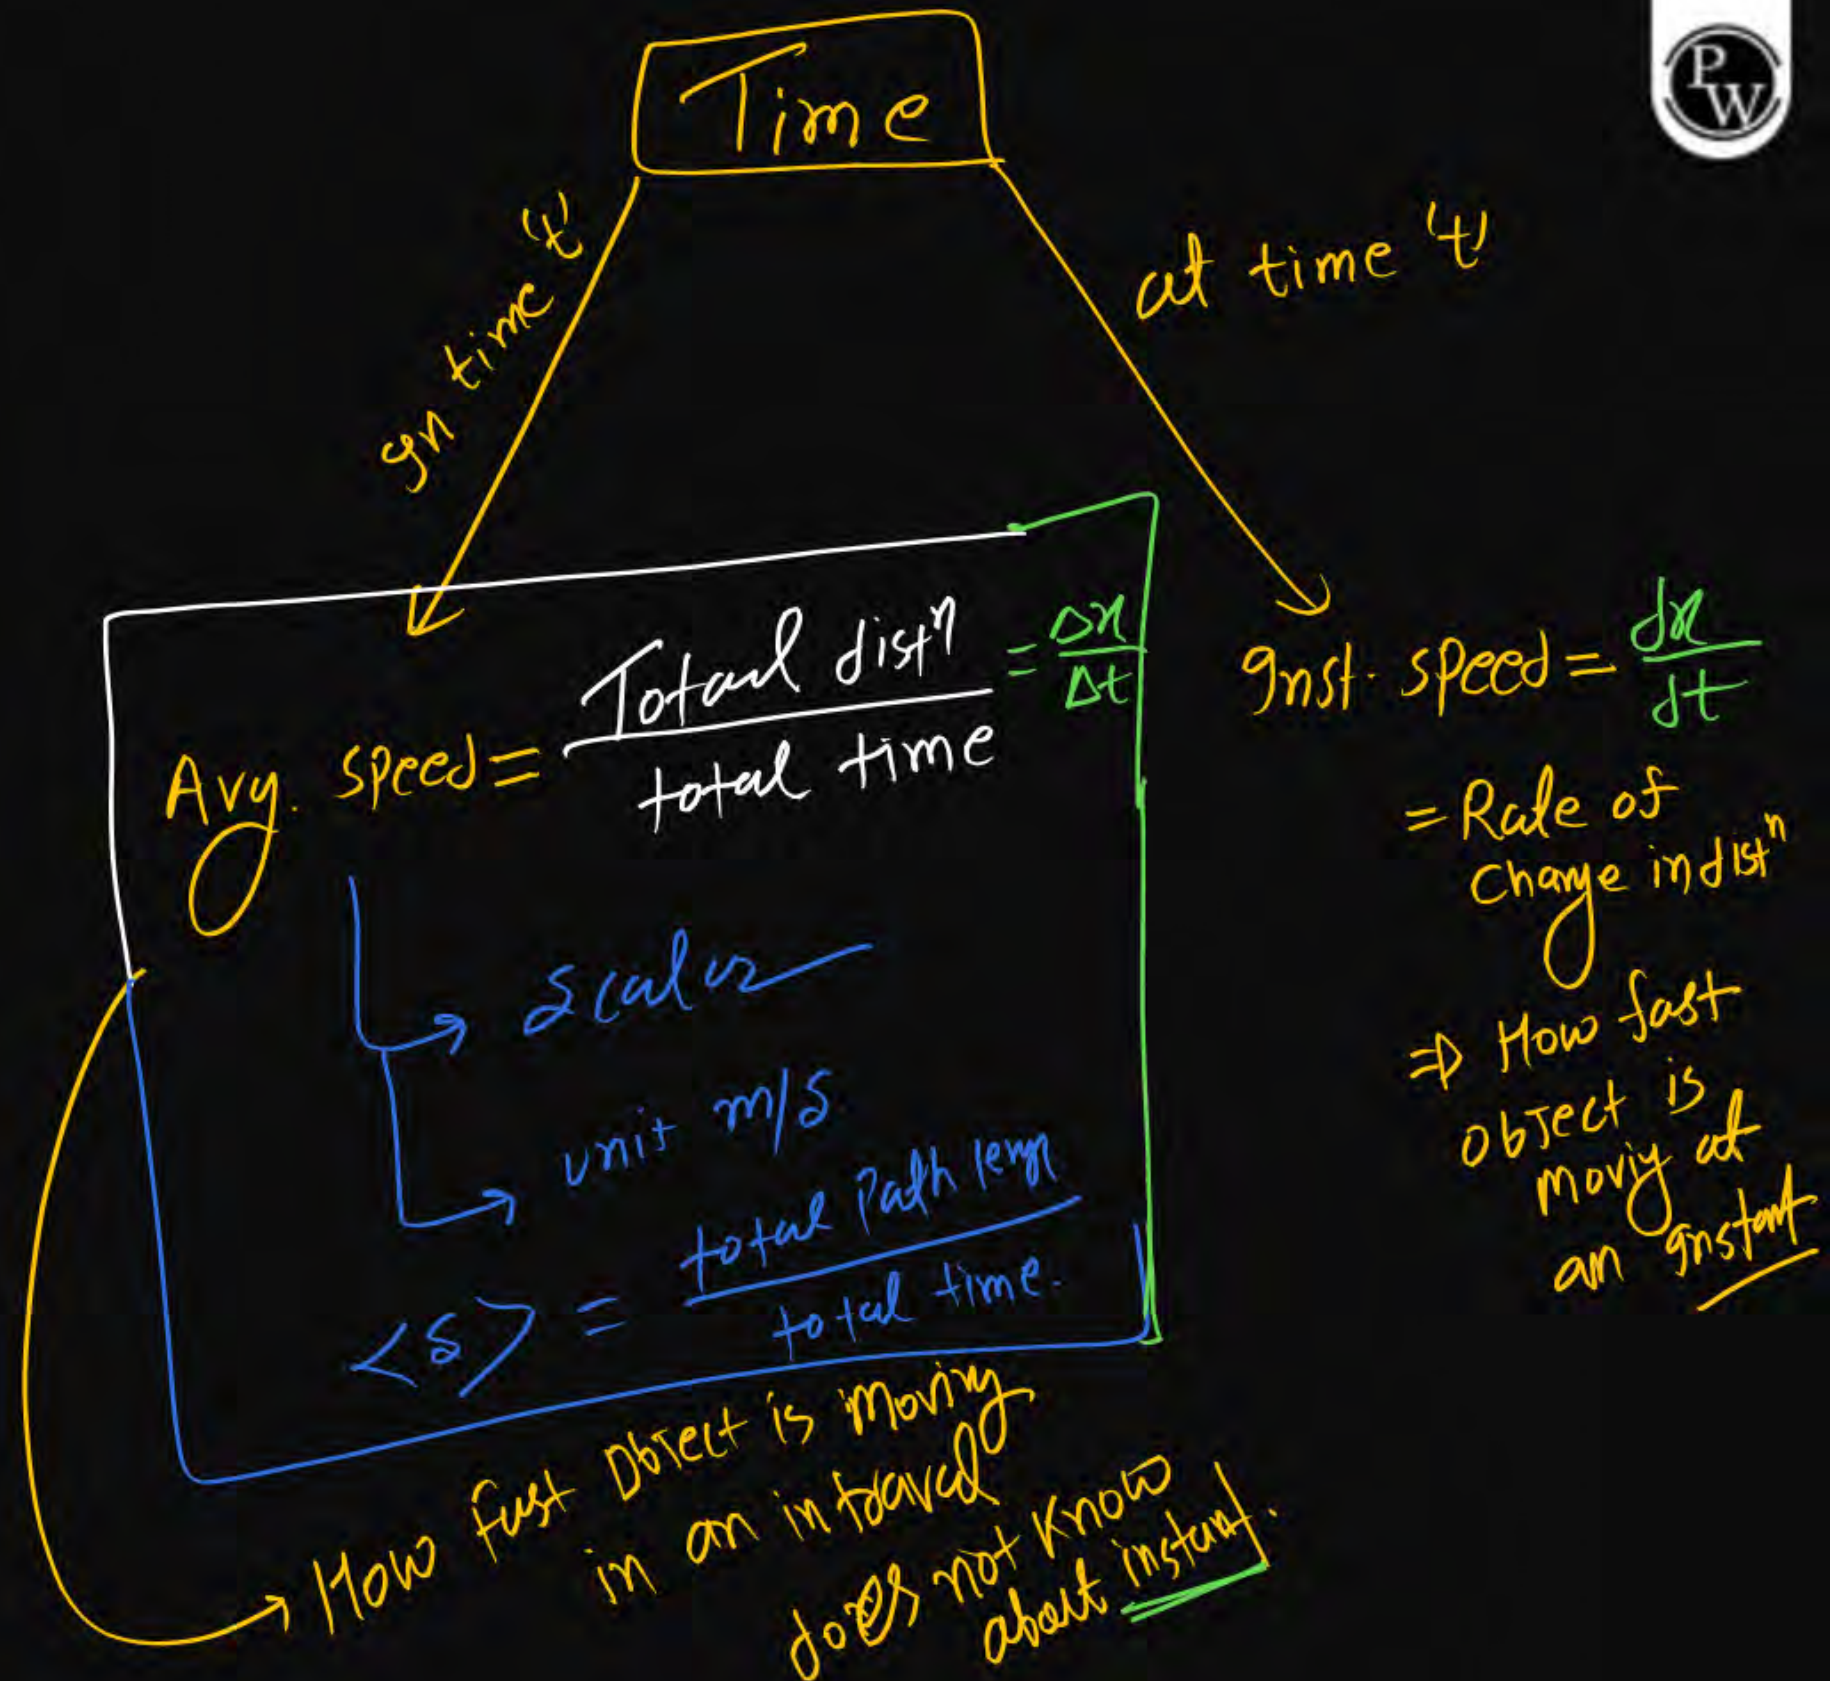 PW
Time
In time 't'
at time 't'
Avg. speed = Total distⁿ / total time = Δx / Δt
→ Scalar
→ unit m/s
<s> = total Path leng / total time.
→ How fast Object is moving
in an intraval
does not know
about instant.
Inst. speed = dx / dt
= Rate of
change in distⁿ
⇒ How fast
object is
moviy at
an Instant